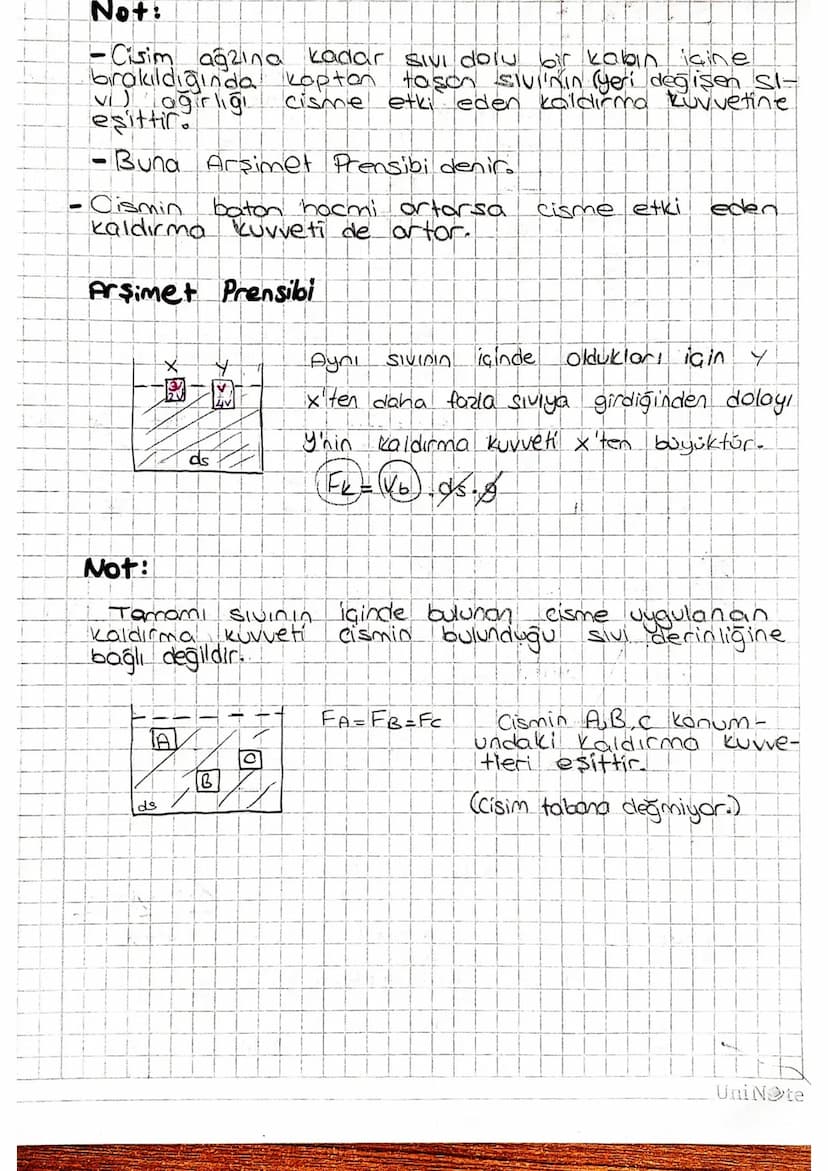 Not:
- Cisim ağzına kadar sıvı dolu bir kabın içine
bırakıldığında kaptan taşan sıvı'nın (yeri değişen sı-
vı) ağırlığı cisme etki eden kaldırma kuvvetine
eşittir.
- Buna Arşimet Prensibi denir.
- Cismin batan hacmi artarsa cisme etki eden
kaldırma kuvveti de artar.
Arşimet Prensibi
X Y
3V V
2V 4V
ds
Aynı sıvının içinde oldukları için Y
x'ten daha fazla sıvıya girdiğinden dolayı
Y'nin kaldırma kuvveti x'ten büyüktür.
Fk = Vb . ds . g
Not:
Tamamı sıvının içinde bulunan cisme uygulanan
kaldırma kuvveti cismin bulunduğu sıvı derinliğine
bağlı değildir.
A
B
C
ds
FA = FB = FC
Cismin A,B,C konum-
undaki kaldırma kuvve-
tleri eşittir.
(Cisim tabana değmiyor.)
UniNote